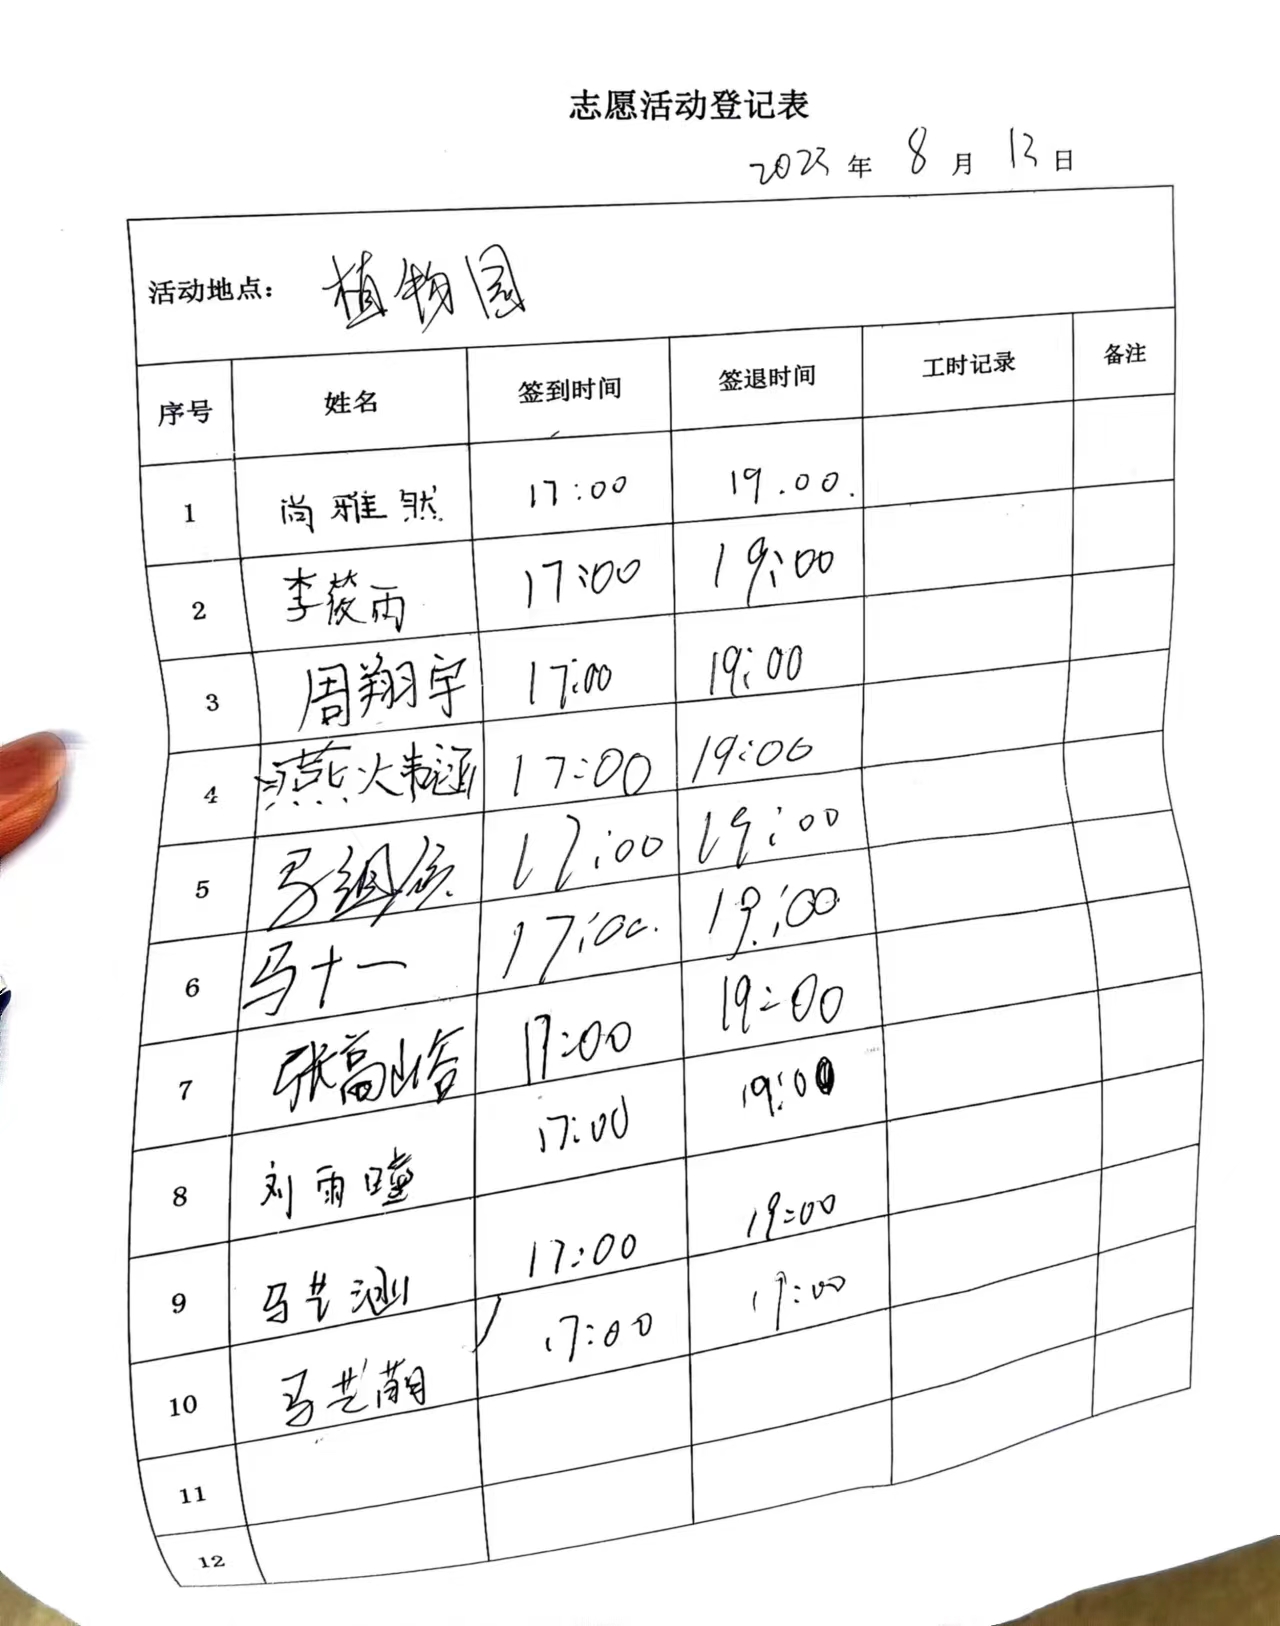 志愿活动登记表
2023 年 8 月 13 日
活动地点: 植物园
序号 姓名 签到时间 签退时间 工时记录 备注
1 尚雅然 17:00 19.00.
2 李筱雨 17:00 19:00
3 周翔宇 17:00 19:00
4 17:00 19:00
5 17:00 19:00
6 马十一 17:00. 19:00
7 张高山谷 17:00 19:00
8 刘雨瞳 17:00 19:00
9 马艺涵 17:00 19:00
10 马艺萌 17:00 19:00
11
12